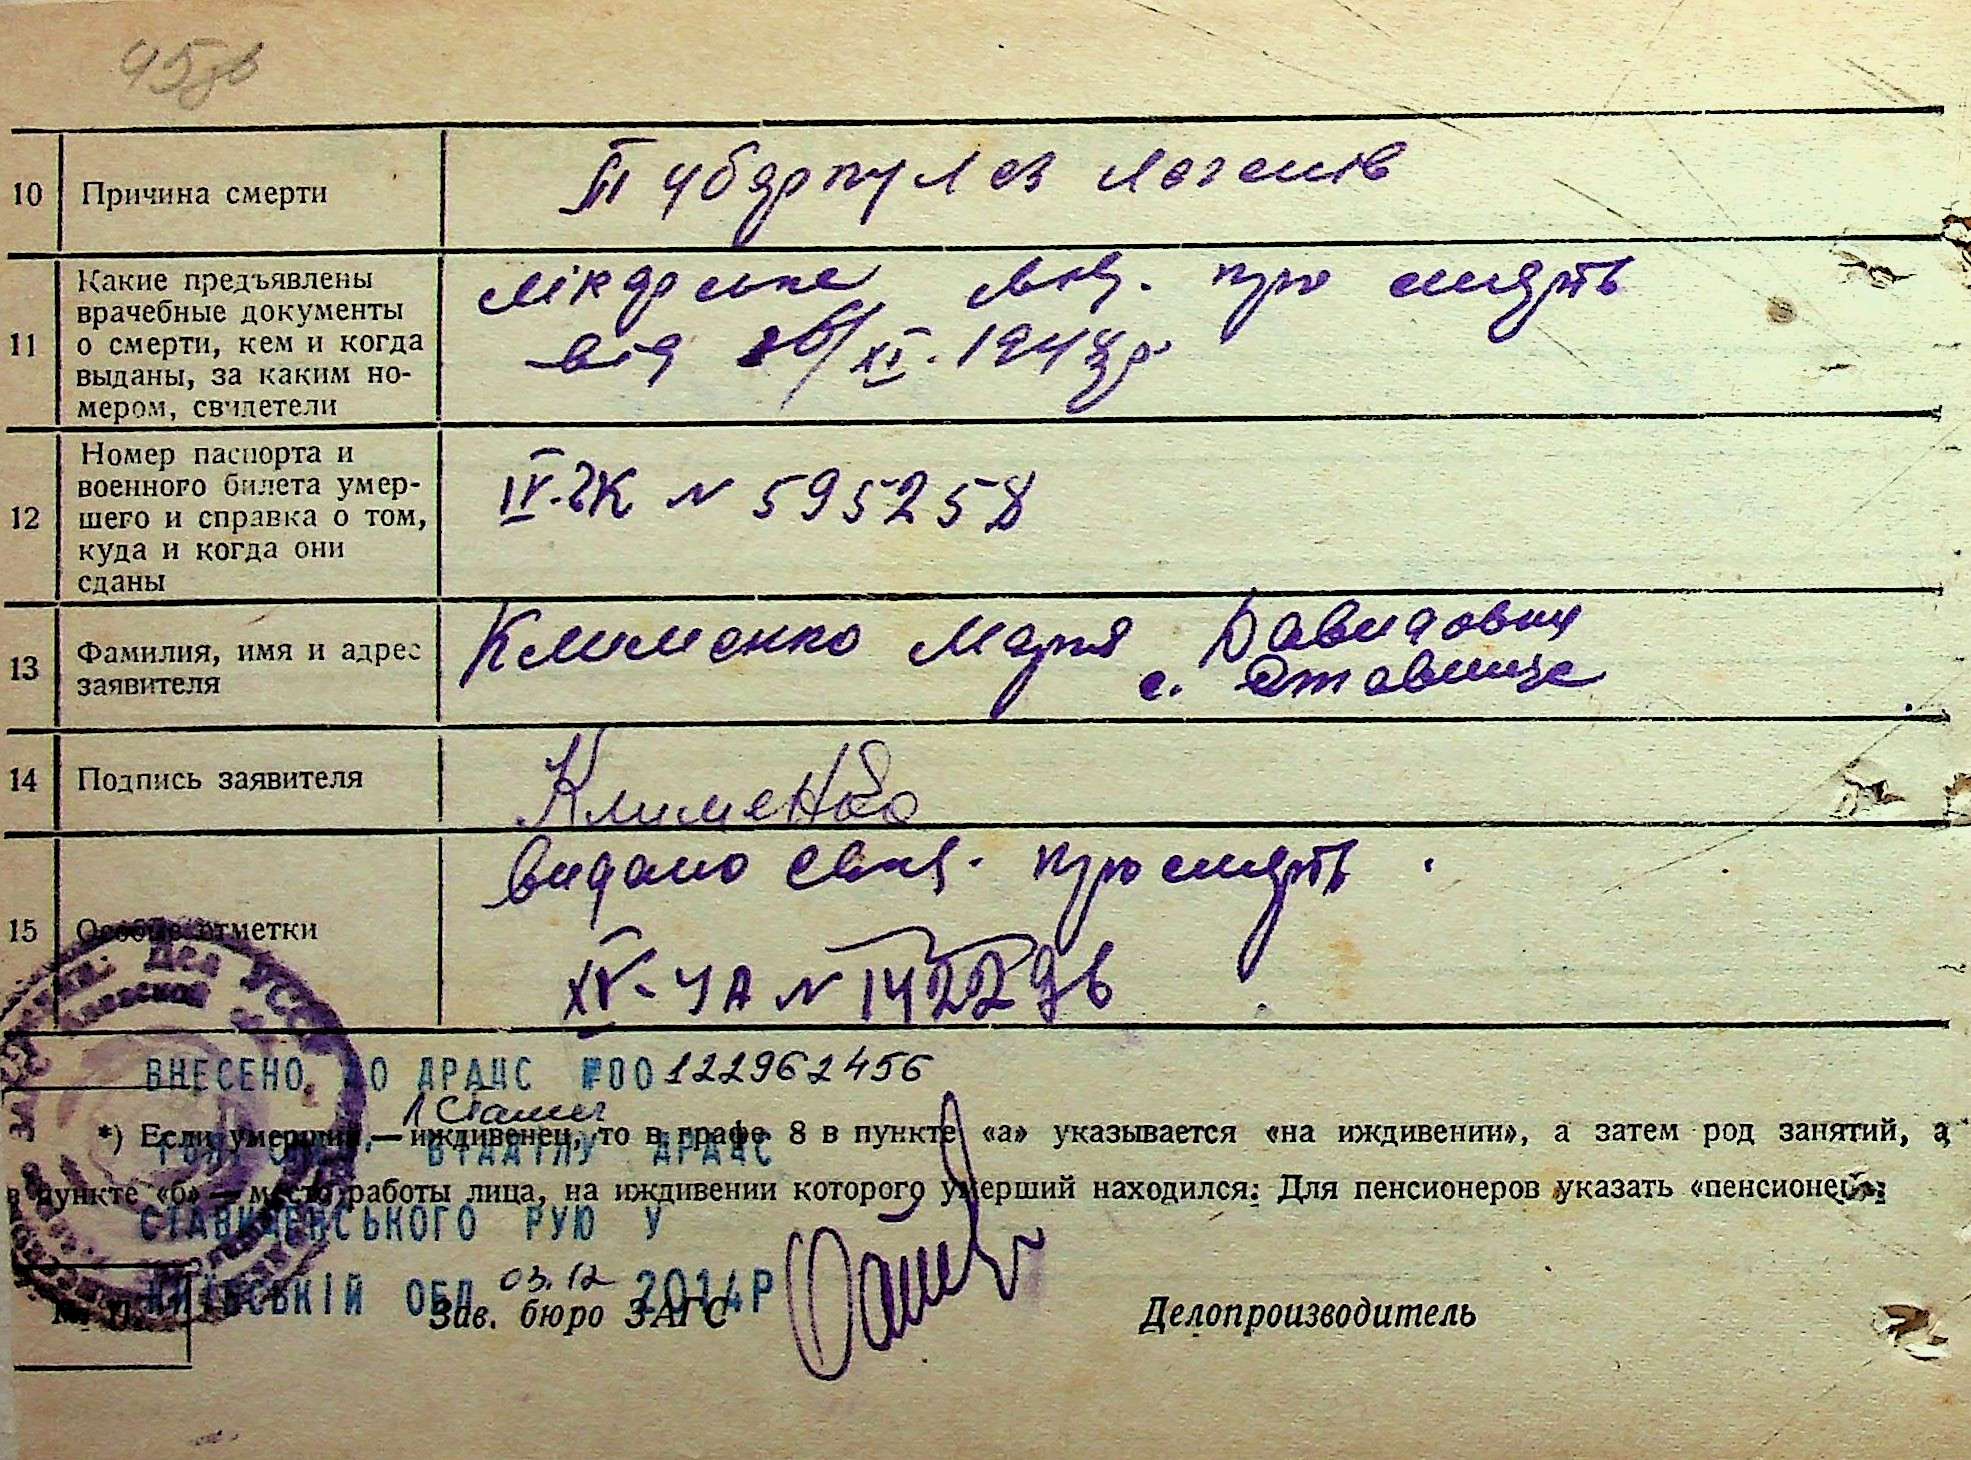 45зв
10 Причина смерти
Туберкульоз легенів
11 Какие предъявлены
врачебные документы
о смерти, кем и когда
выданы, за каким но-
мером, свидетели
лікарське свід. про смерть
від /XI. 194
12 Номер паспорта и
военного билета умер-
шего и справка о том,
куда и когда они
сданы
N 595258
13 Фамилия, имя и адрес
заявителя
Клименко Марія Давидовна
с. Ставище
14 Подпись заявителя
Клименко
15 Особые отметки
видано свід. про смерть
XV-ЧА N
УССР
ВНЕСЕНО ДО ДРАЦС №00122962456
*) Если умерший — иждивенец, то в графе 8 в пункте «а» указывается «на иждивении», а затем род занятий, а
ВІДДІЛУ ДРАЦС
в пункте «б» — место работы лица, на иждивении которого умерший находился. Для пенсионеров указать «пенсионер».
СТАВИЩЕНСЬКОГО РУЮ У
КИЇВСЬКІЙ ОБЛ 03.12 2014Р
М. П.
Зав. бюро ЗАГС
Делопроизводитель